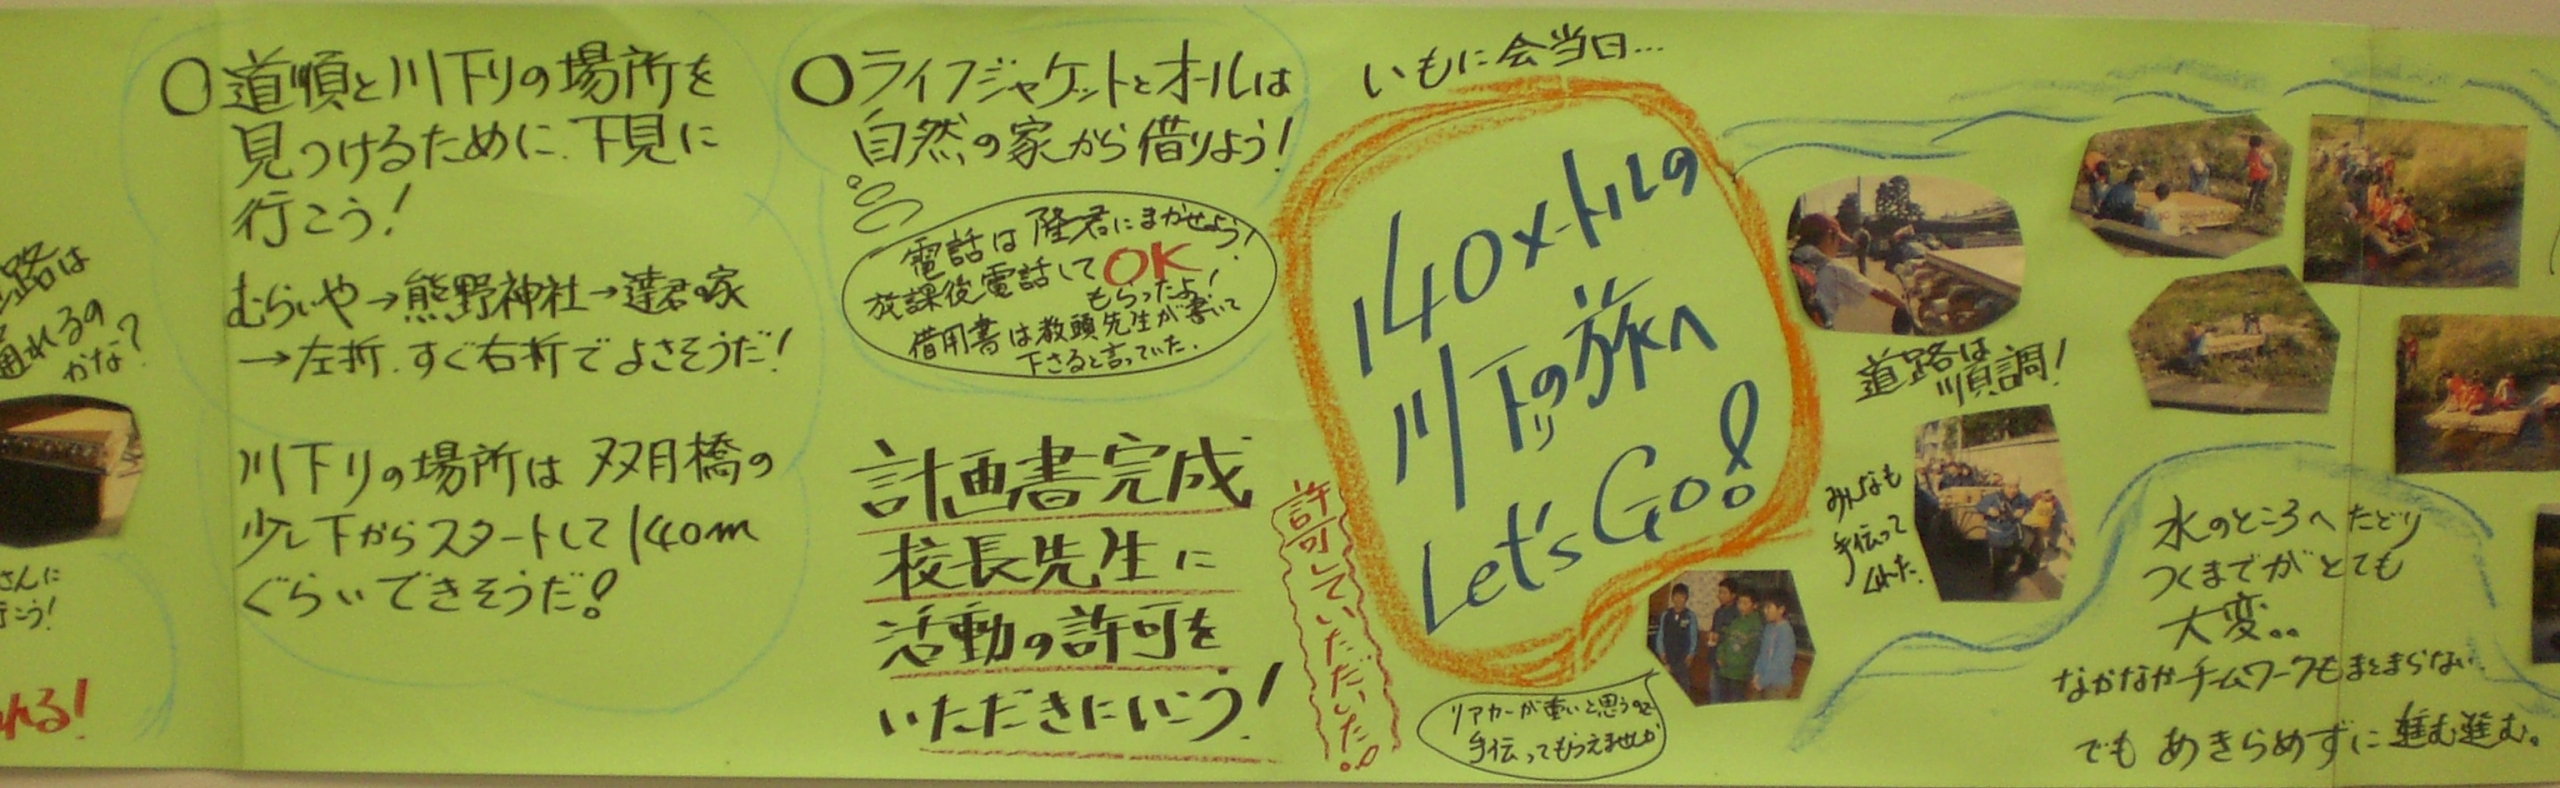 路は
通れるの
かな？
さんに
行こう！
れる！
○道順と川下りの場所を
見つけるために、下見に
行こう！
むらいや→熊野神社→達君の家
→左折、すぐ右折でよさそうだ！
川下りの場所は双月橋の
少し下からスタートして140m
ぐらいできそうだ！
○ライフジャケットとオールは
自然の家から借りよう！
電話は隆君にまかせよう！
放課後電話してOK
もらったよ！
借用書は教頭先生が書いて
下さると言っていた。
計画書完成
校長先生に
活動の許可を
いただきにいこう！
許可していただいた！！
いもに会当日…
140メートルの
川下りの旅へ
Let's Go!
リアカーが重いと思うので
手伝ってもらえませんか
道路は
順調！
みんなも
手伝って
くれた。
水のところへたどり
つくまでがとても
大変。。
なかなかチームワークもまとまらない。
でもあきらめずに進む進む。